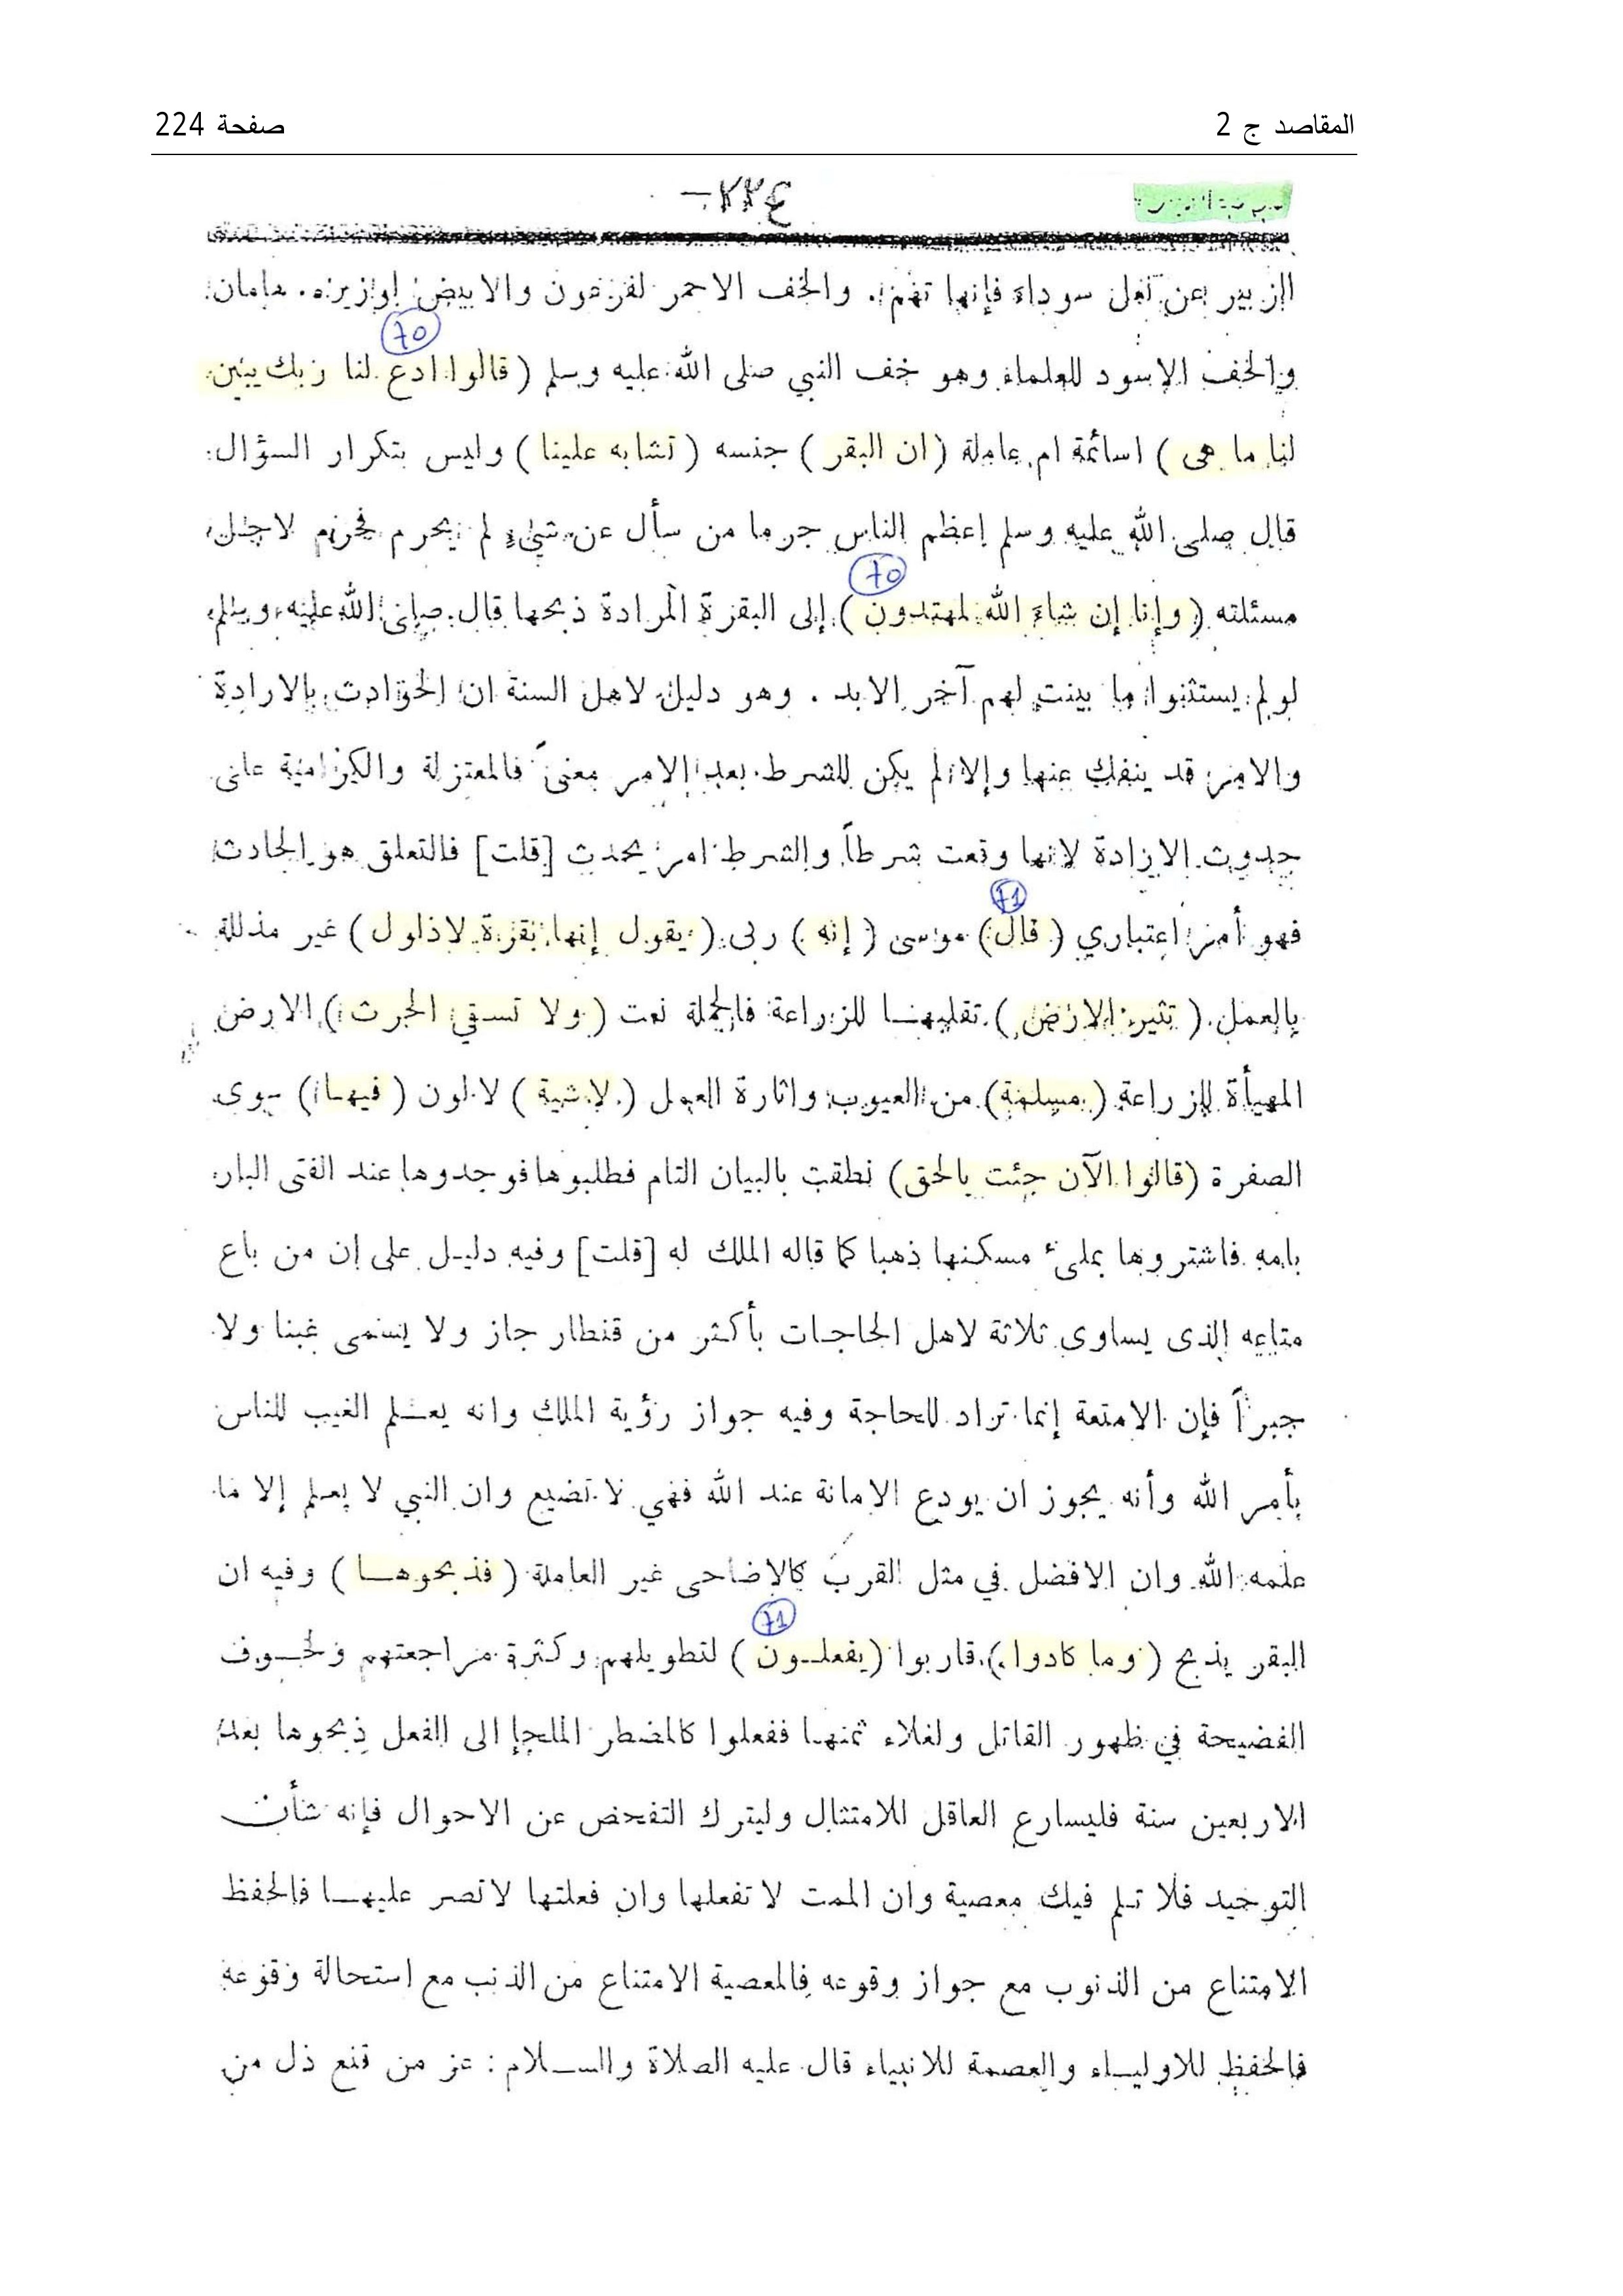 المقاصد ج 2 صفحة 224
٢٢٤ —
الزبير عن نعل سوداء فإنها تهم. والخف الاحمر لفرعون والابيض لوزيره. هامان
70
والخف الاسود للعلماء وهو خف النبي صلى الله عليه وسلم ( قالوا ادع لنا ربك يبين
لنا ما هى ) اسائمة ام عاملة ( ان البقر ) جنسه ( تشابه علينا ) وليس بتكرار السؤال
قال صلى الله عليه وسلم إعظم الناس جرما من سأل عن شيء لم يحرم فحرم لاجل
70
مسئلته ( وإنا إن شاء الله لمهتدون ) إلى البقرة المرادة ذبحها قال صلى الله عليه وسلم
لو لم يستثنوا ما بينت لهم آخر الابد . وهو دليل لاهل السنة ان الحوادث بالارادة
والامر قد ينفك عنها وإلا لم يكن للشرط بعد الامر معنىً فالمعتزلة والكرامية على
حدوث الارادة لانها وقعت شرطاً والشرط امر يحدث [قلت] فالتعلق هو الحادث
71
فهو أمر اعتباري ( قال ) موسى ( إنه ) ربى ( يقول إنها بقرة لاذلول ) غير مذللة
بالعمل ( تثير الارض ) تقليبهـا للزراعة فالجملة نعت ( ولا تسقي الحرث ) الارض
المهيأة للزراعة ( مسلمة ) من العيوب واثارة العمل ( لا شية ) لا لون ( فيهـا ) سوى
الصفرة ( قالوا الآن جئت بالحق ) نطقت بالبيان التام فطلبوها فوجدوها عند الفتى البار
بامه فاشتروها بملئ مسكنها ذهبا كما قاله الملك له [قلت] وفيه دليـل على إن من باع
متاعه الذى يساوى ثلاثة لاهل الحاجـات بأكثر من قنطار جاز ولا يسمى غبنا ولا
جبراً فإن الامتعة إنما تراد للحاجة وفيه جواز رؤية الملك وانه يعـلم الغيب للناس
بأمر الله وأنه يجوز ان يودع الامانة عند الله فهي لا تضيع وان النبي لا يعلم إلا ما
علمه الله وان الافضل في مثل القرب كالاضاحى غير العاملة ( فذبحوهـا ) وفيه ان
71
البقر يذبح ( وما كادوا ) قاربوا ( يفعلـون ) لتطويلهم وكثرة مراجعتهم ولخـوف
الفضيحة في ظهور القاتل ولغلاء ثمنهـا ففعلوا كالمضطر الملجإ الى الفعل ذبحوها بعد
الاربعين سنة فليسارع العاقل للامتثال وليترك التفحص عن الاحوال فإنه شأن
التوحيد فلا تـلم فيك معصية وان المت لا تفعلها وان فعلتها لا تصر عليهـا فالحفظ
الامتناع من الذنوب مع جواز وقوعه فالمعصية الامتناع من الذنب مع استحالة وقوعه
فالحفظ للاوليـاء والعصمة للانبياء قال عليه الصلاة والسـلام : عز من قنع ذل من